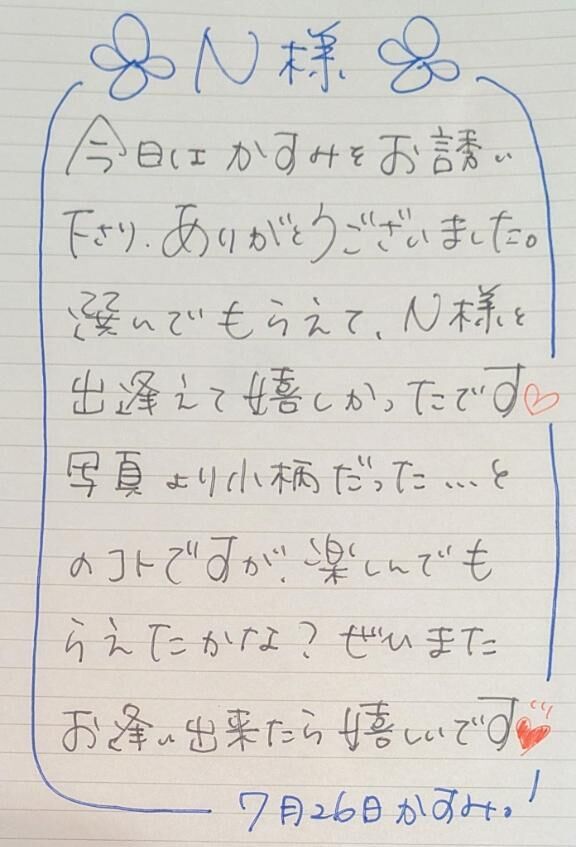 N様
今日はかすみをお誘い
下さり、ありがとうございました。
選んでもらえて、N様と
出逢えて嬉しかったです♡
写真より小柄だった…と
のコトですが、楽しんでも
らえたかな？ぜひまた
お逢い出来たら嬉しいです♥
7月26日かすみ。